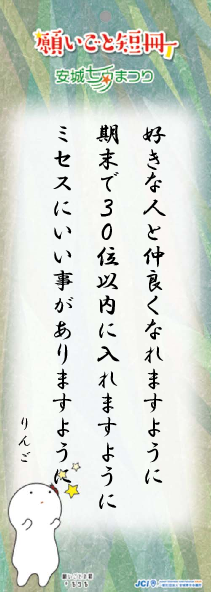 願いごと短冊
安城七夕まつり
好きな人と仲良くなれますように
期末で30位以内に入れますように
ミセスにいい事がありますように
りんご
JCI